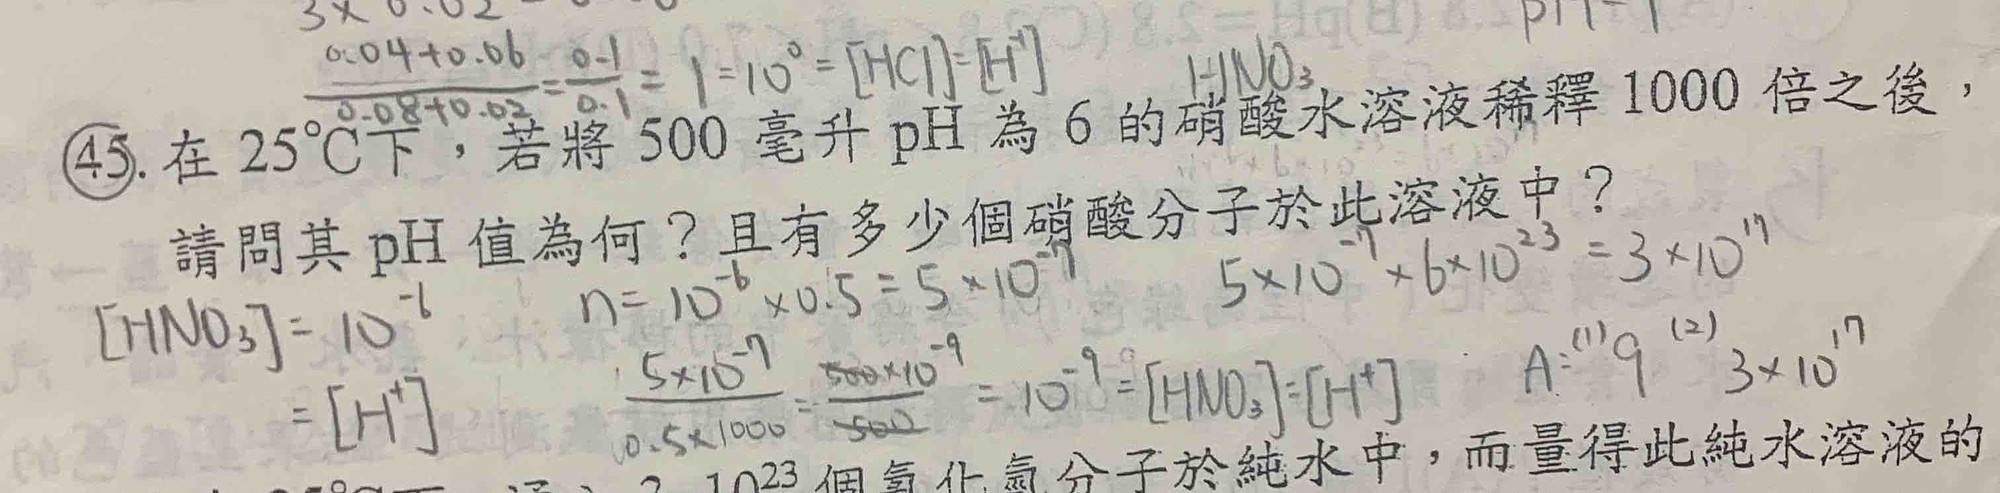 3×0.02
pH=1
0.04+0.06 / 0.08+0.02 = 0.1 / 0.1 = 1 = 10⁰ = [HCl] = [H⁺]
HNO₃
45. 在 25℃下，若將 500 毫升 pH 為 6 的硝酸水溶液稀釋 1000 倍之後，
請問其 pH 值為何？且有多少個硝酸分子於此溶液中？
[HNO₃] = 10⁻⁶
n = 10⁻⁶ × 0.5 = 5×10⁻⁷
5×10⁻⁷ × 6×10²³ = 3×10¹⁷
= [H⁺]
5×10⁻⁷ / 0.5×1000 = 500×10⁻⁹ / 500 = 10⁻⁹ = [HNO₃] = [H⁺]
A: (1) 9 (2) 3×10¹⁷
10²³ 個氯化氫分子於純水中，而量得此純水溶液的